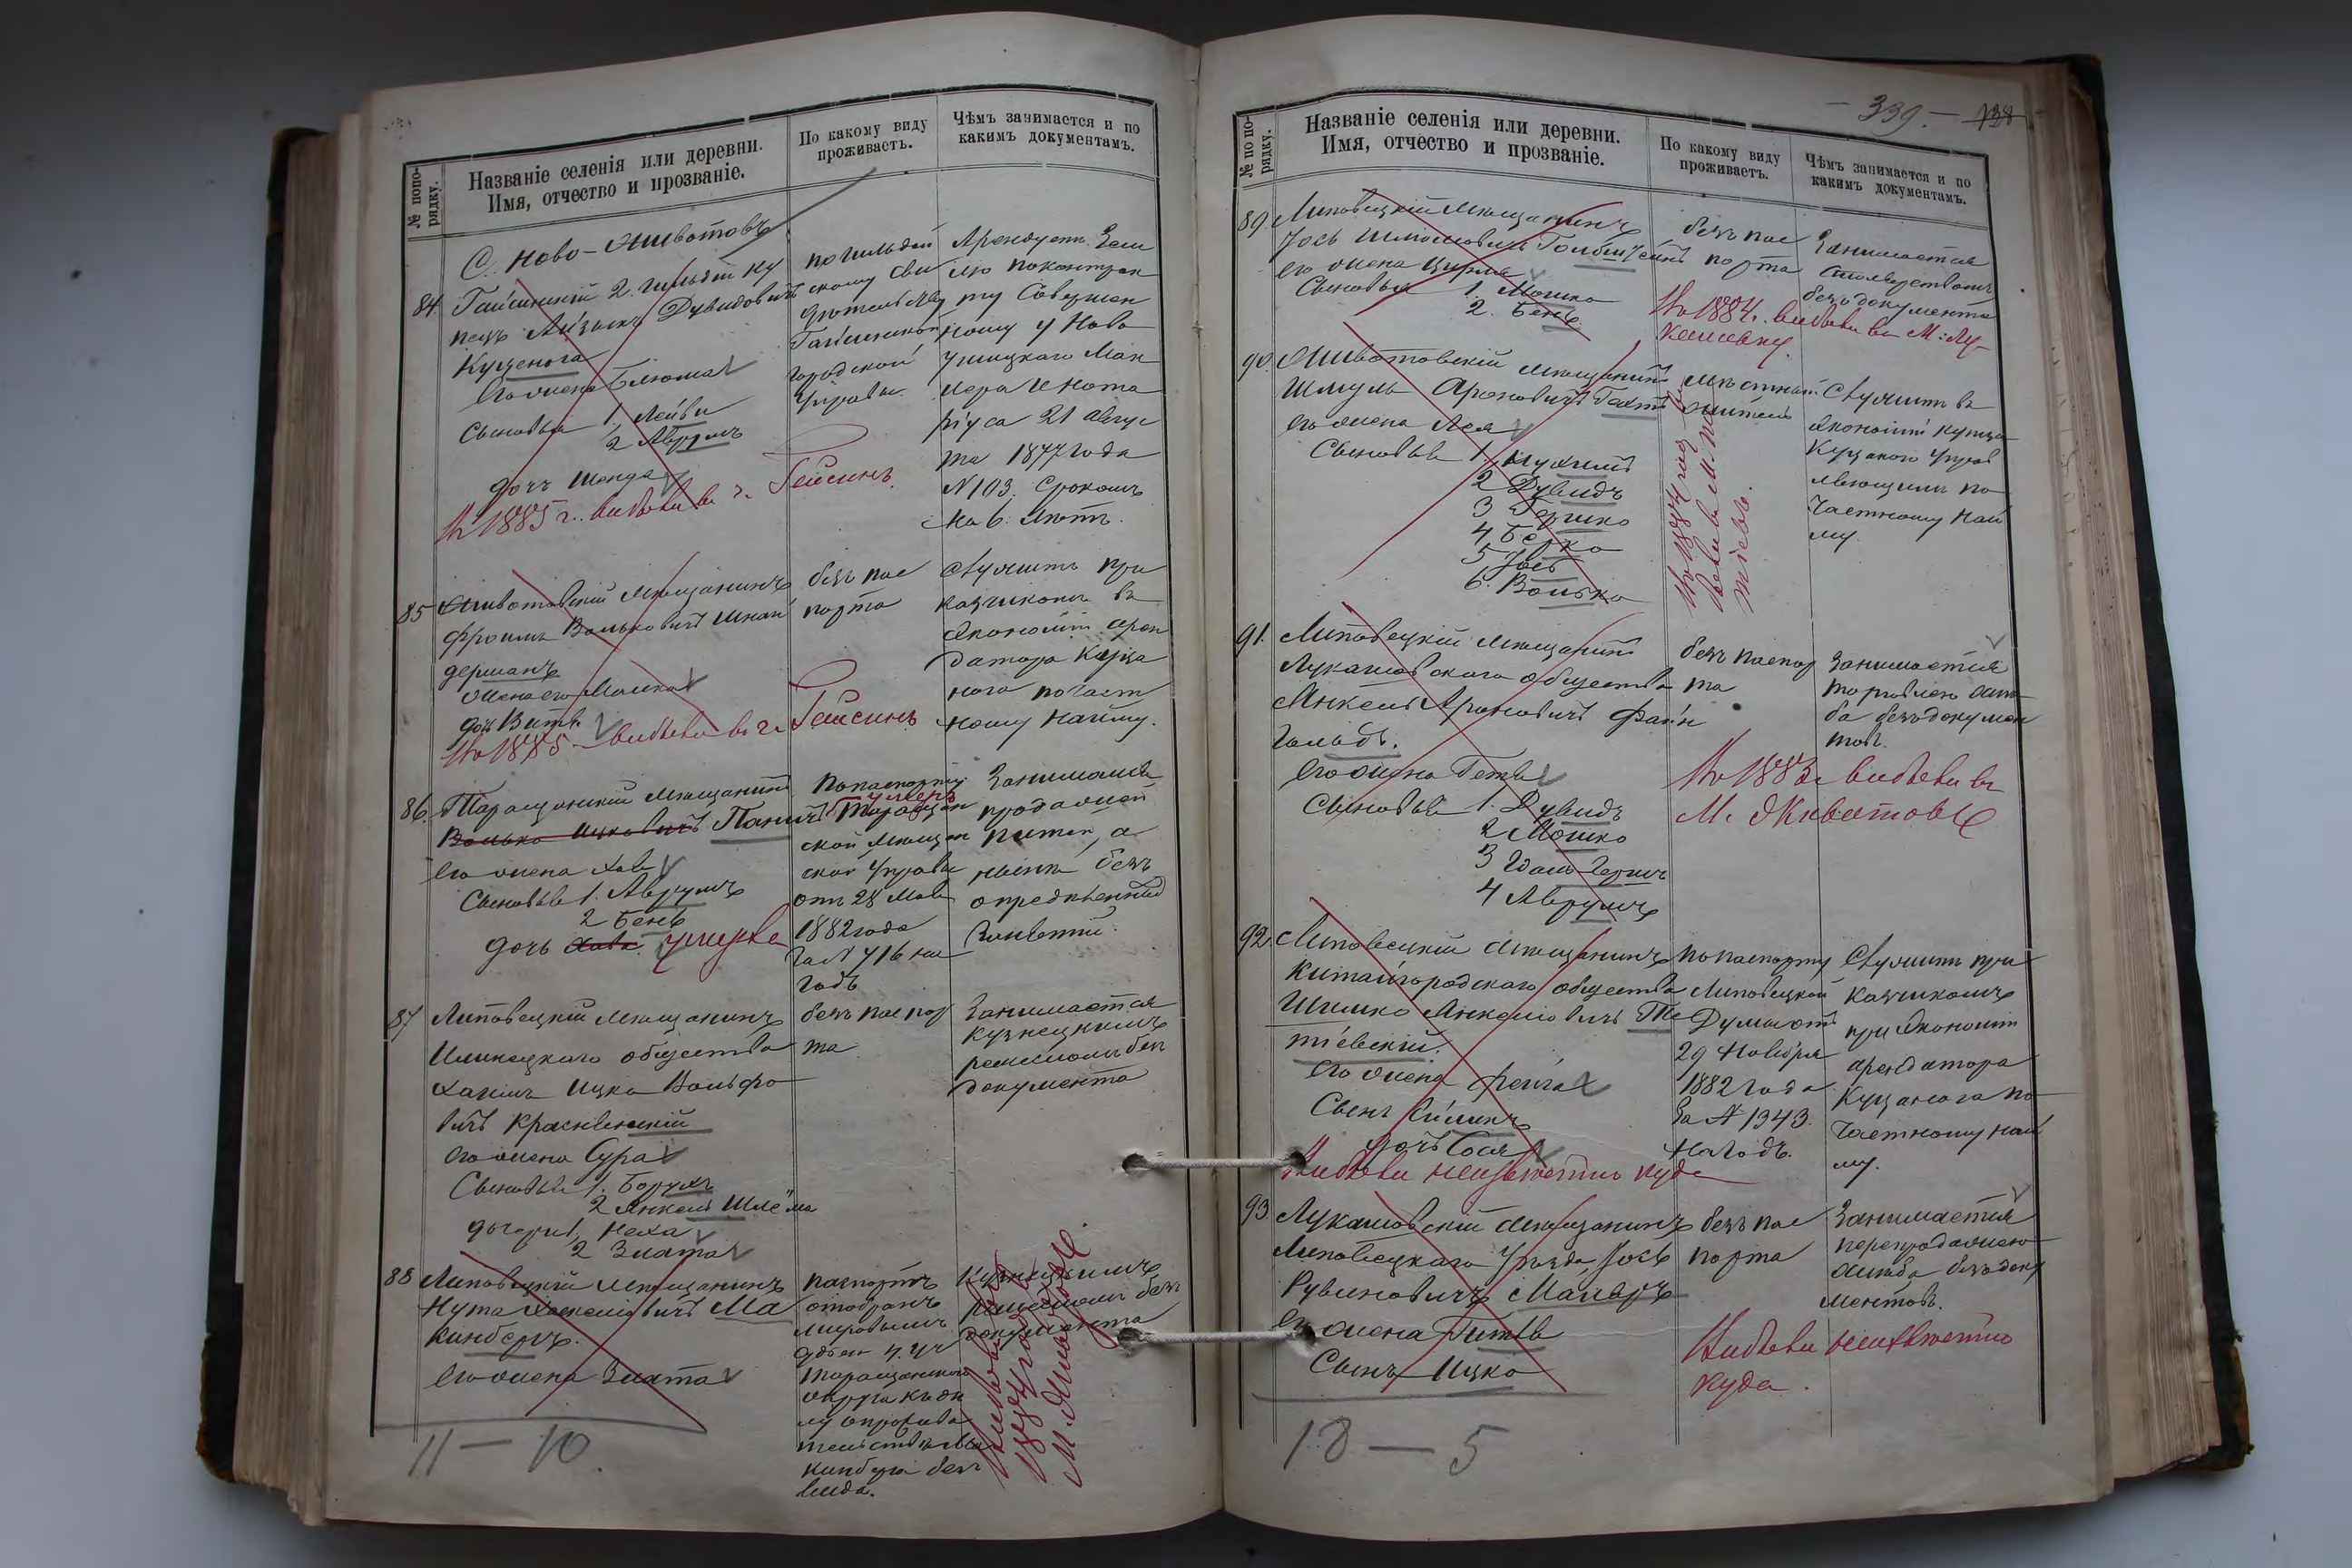 № попо-
рядку.
Названіе селенія или деревни.
Имя, отчество и прозваніе.
По какому виду
проживаетъ.
Чѣмъ занимается и по
какимъ документамъ.
С. Ново-Животовъ
84.
Гайсинскій 2. гильдіи ку
пецъ Айзыкъ Дувидовичъ
Куценога
Его жена Блюма
Сыновья 1. Лейви
2 Аврумъ
дочь Шейда
Въ 1885 г. выбыли в г. Гайсинъ
по гильдей
скому сви
дѣтельству
Гайсинской
городской
Управы.
Арендуетъ Зем
лю по контрак
ту Совершен
ному у Ново
ушицкаго Мак
лера и нота
ріуса 21 Авгус
та 1877 года
N 103. Срокомъ
на 6. лѣтъ.
85
Животовскій мѣщанинъ
Фроимъ Вольковичъ Шнай
дерманъ
жена его Малка
дочь Витя
Въ 1885 выбыли в г. Гайсинъ
безъ пас
порта
Служитъ при
кащикомъ въ
Экономіи арен
датора Куца
нога по част
ному найму.
86.
Таращанскій мѣщанинъ
Волько Ицковичъ Паничъ
умеръ
его жена Хава
Сыновья 1. Аврумъ
2 Бень
дочь Хава. умерла
По паспорту
Таращан
ской мѣщан
ской Управы
отъ 28 Мая
1882 года
за N 716 на
годъ
Занимался
продажей
питей, а
нынѣ безъ
опредѣленныхъ
Занятій.
87
Липовецкій мѣщанинъ
Ильинецкаго общества
Хаимъ Ицко Вольфо
вичъ Краснянскій
его жена Сура
Сыновья 1. Борухъ
2 Янкель Шлема
дочери 1. Неха
2 Злата
безъ паспор
та
Занимается
Кузнецкимъ
ремесломъ безъ
документа
88
Липовецкій мѣщанинъ
Нута Хаскелевичъ Ма
кинбергъ.
его жена Злата
паспортъ
отобранъ
мировымъ
судьею 4. уч
Таращанскаго
округа къ дѣ
лу
Кинберга безъ
вида.
Кузнецкимъ
ремесломъ безъ
документа
Выбыли въ
1882 году въ
М. Животовъ.
11 — 10.
— 339. — 138
№ по по-
рядку.
Названіе селенія или деревни.
Имя, отчество и прозваніе.
По какому виду
проживаетъ.
Чѣмъ занимается и по
какимъ документамъ.
89.
Липовецкій мѣщанинъ
Іось Шлiомовичъ Гольдштейнъ
его жена Цирля
Сыновья 1. Мошко
2. Бень
безъ пас
порта
Занимается
столярствомъ
безъ документа
Въ 1884. выбыли въ М: Лу-
кашевку.
90.
Животовскій мѣщанинъ
Шмуль Ароновичъ Гехтъ
его жена Лея
Сыновья 1. Нухимъ
2 Дувидъ
3 Гершко
4 Берко
5 Іось
6. Волько
мѣстный
житель
Служитъ въ
Экономіи купца
Куцаного Управ
ляющимъ по
Частному най
му.
91.
Липовецкій мѣщанинъ
Лукашовскаго общества
Янкель Ароновичъ Файн
гольдъ.
Его жена Гитля
Сыновья 1. Дувидъ
2 Мошко
3 Идель Гершъ
4 Аврумъ
безъ паспор
та
Занимается
торговлею хлѣ-
ба безъ докумен
товъ.
Въ 1883 г. выбыли въ
М. Животовъ
92.
Липовецкій мѣщанинъ
Китайгородскаго общества
Шлемко Янкелiовичъ Те
тіевскій.
Его жена Фейга
Сынъ
дочь Сося
Выбыли неизвѣстно куда
по паспорту
Липовецкой
Думы отъ
29 Ноября
1882 года
за N 1343.
На годъ.
Служитъ при
Кащикомъ
при Экономіи
арендатора
Куцанога по
Частному най
му.
93
Лукашовскій мѣщанинъ
Липовецкаго Уѣзда, Іось
Рувиновичъ Маляръ
Его жена Гитля
Сынъ Ицко
безъ пас
порта
Занимается
перепродажею
хлѣба безъ доку
ментовъ.
Выбыли неизвѣстно
куда.
18 — 5